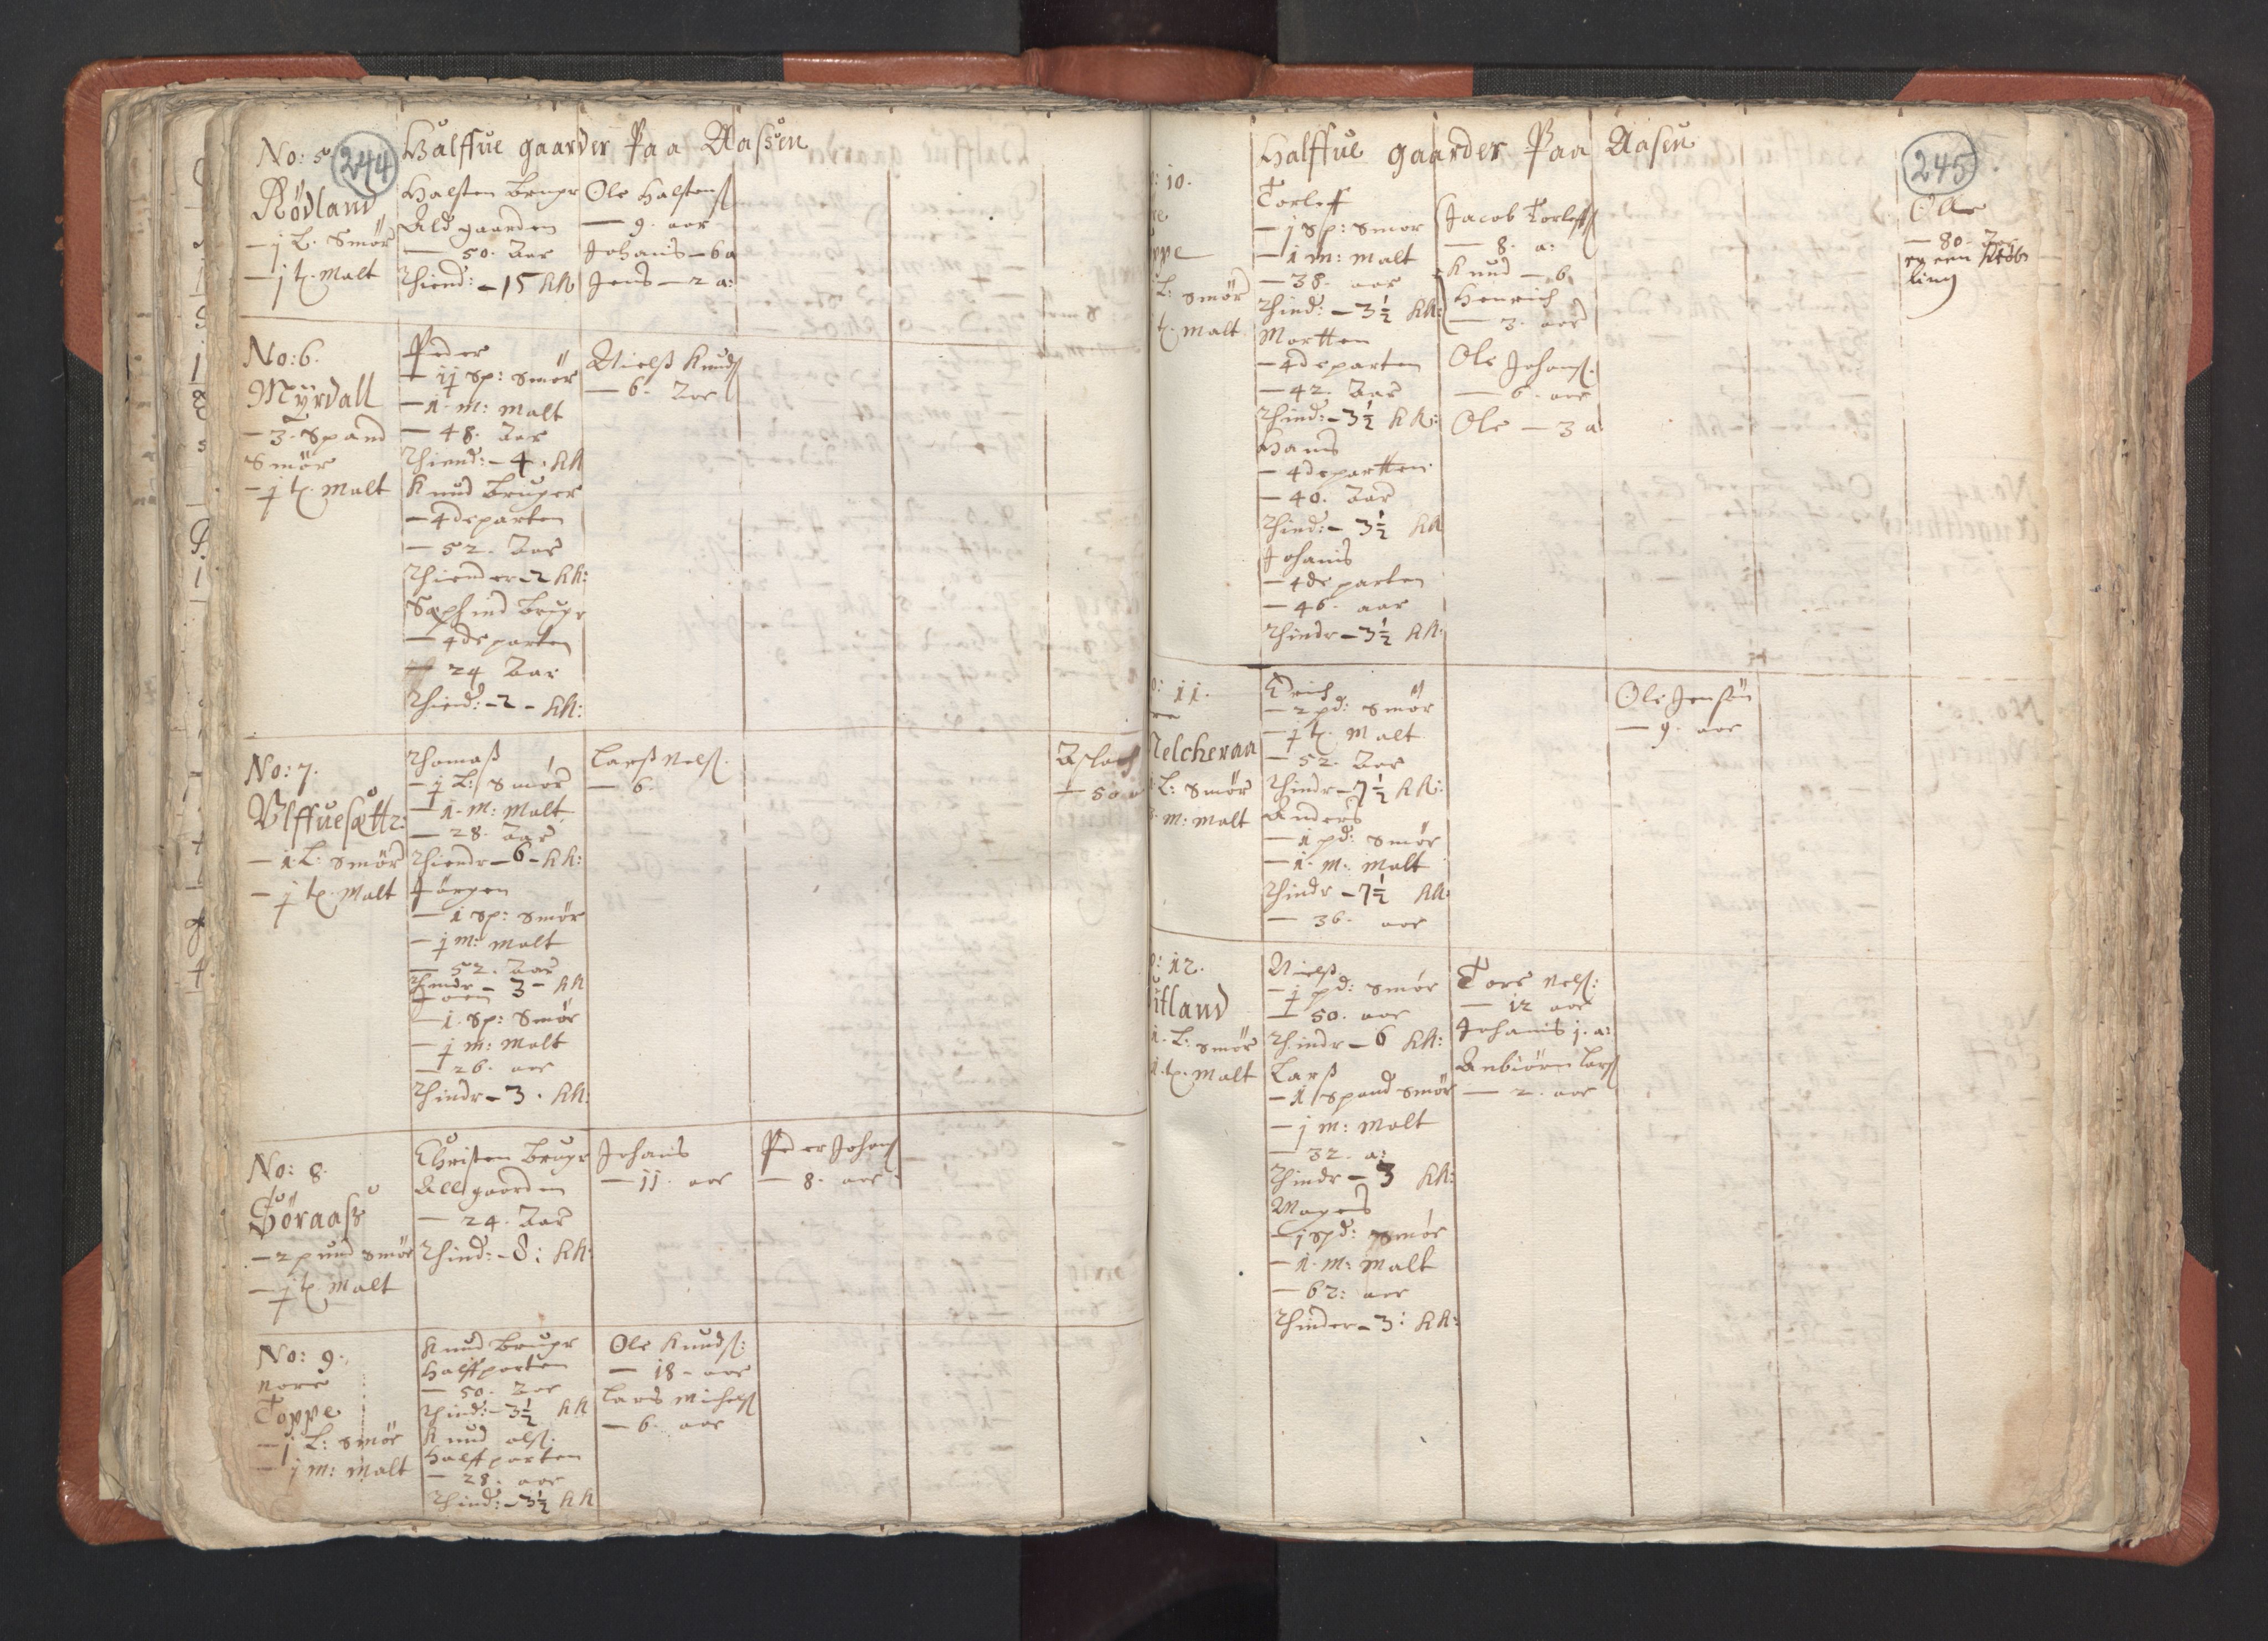 244
Halffue gaarder Paa Aassen
No: 5
Rödland
— j L: Smör
— j t. Malt
Halsten brugr
Ald gaarden
— 50. Aar
Thiend: – 15 kh
Ole Halstens
— 9. aar
Johanis – 6 a
Jens – 2 a:
No: 6.
Myrdall
— 3 Spand
Smör
— j t. Malt
Peder
— ij Sp: Smör
— 1. m: Malt
— 48. Aar
Thiend: – 4. kh
Knud bruger
— 4de parten
— 52. Aar
Thiender – 2 kh:
Sephind brugr
— 4de parten
— 24 Aar
Thiend: – 2 – kh:
Nielß Knuds
— 6. Aar
No: 7.
Ulffuesættr:
— 1 L: Smör
— j t. Malt
Thomaß
— j L: Smör
— 1. m: Malt
— 28. Aar
Thiendr – 6 – kh:
Jörgen
— 1 sp: Smör
— j m: Malt
— 52. Aar
Thindr – 3 – kh
Joen
— 1. Sp: Smör
— j m: Malt
— 26. aar
Thindr – 3. kh:
Larß Nels.
— 6.
Aslach
— 50 a
No: 8.
Töraaß
— 2 pund Smör
— j t. Malt
Christen brugr
All gaarden
— 24. Aar
Thind: – 8: kh:
Johanis
— 11. aar
Peder Johans
— 8. aar
No: 9.
Nore
Toppe
— j L: Smör
— j m: Malt
Knud brugr
Halffparten
— 50. Aar
Thind: – 3½ kh
Knud Ols:
Halffparten
— 28. aar
Thind: – 3½ kh
Ole Knuds:
— 18 – aar
Lars Michels
— 6. aar
245
Halffue gaarder Paa Aasen
: 10.
ppe
L: Smör
t. Malt
Torleff
— j Sp: Smör
— 1 m: Malt
— 38. aar
Thind: – 3½ kh:
Mortten
— 4de parten
— 42. Aar
Thind: – 3½ kh:
Hans
— 4de partten
— 40. Aar
Thind: – 3½ kh
Johanis
— 4de parten
— 46. aar
Thindr – 3½ kh:
Jacob Torleffs
— 8. a:
Knud – 6
Henrich
— 3. aar
Ole Johans.
— 6. aar
Ole – 3 a
Olle
— 80 Aar
er een Kröb
ling
: 11.
Melcheraa
L: Smör
m: Malt
Erich
— 2 pd: Smör
— j t. Malt
— 52. Aar
Thindr – 7½ kh:
Anders
— 1 pd: Smör
— 1. m: Malt
Thindr – 7½ kh:
— 36. aar
Ole Jensön
— 9. aar
: 12.
tland
1. L: Smör
1. t. Malt
Nielß
— j pd: Smör
— 50. aar
Thindr – 6 kh:
Larß
— 1 Spand Smör
— j m: Malt
— 32. a:
Thindr – 3 kh:
Mogens
— j spd: Smör
— 1. m: Malt
— 62: aar
Thinder – 3: kh:
Tore Nels:
— 12 aar
Johanis j. a:
Anbiörn Lars
— 2. aar